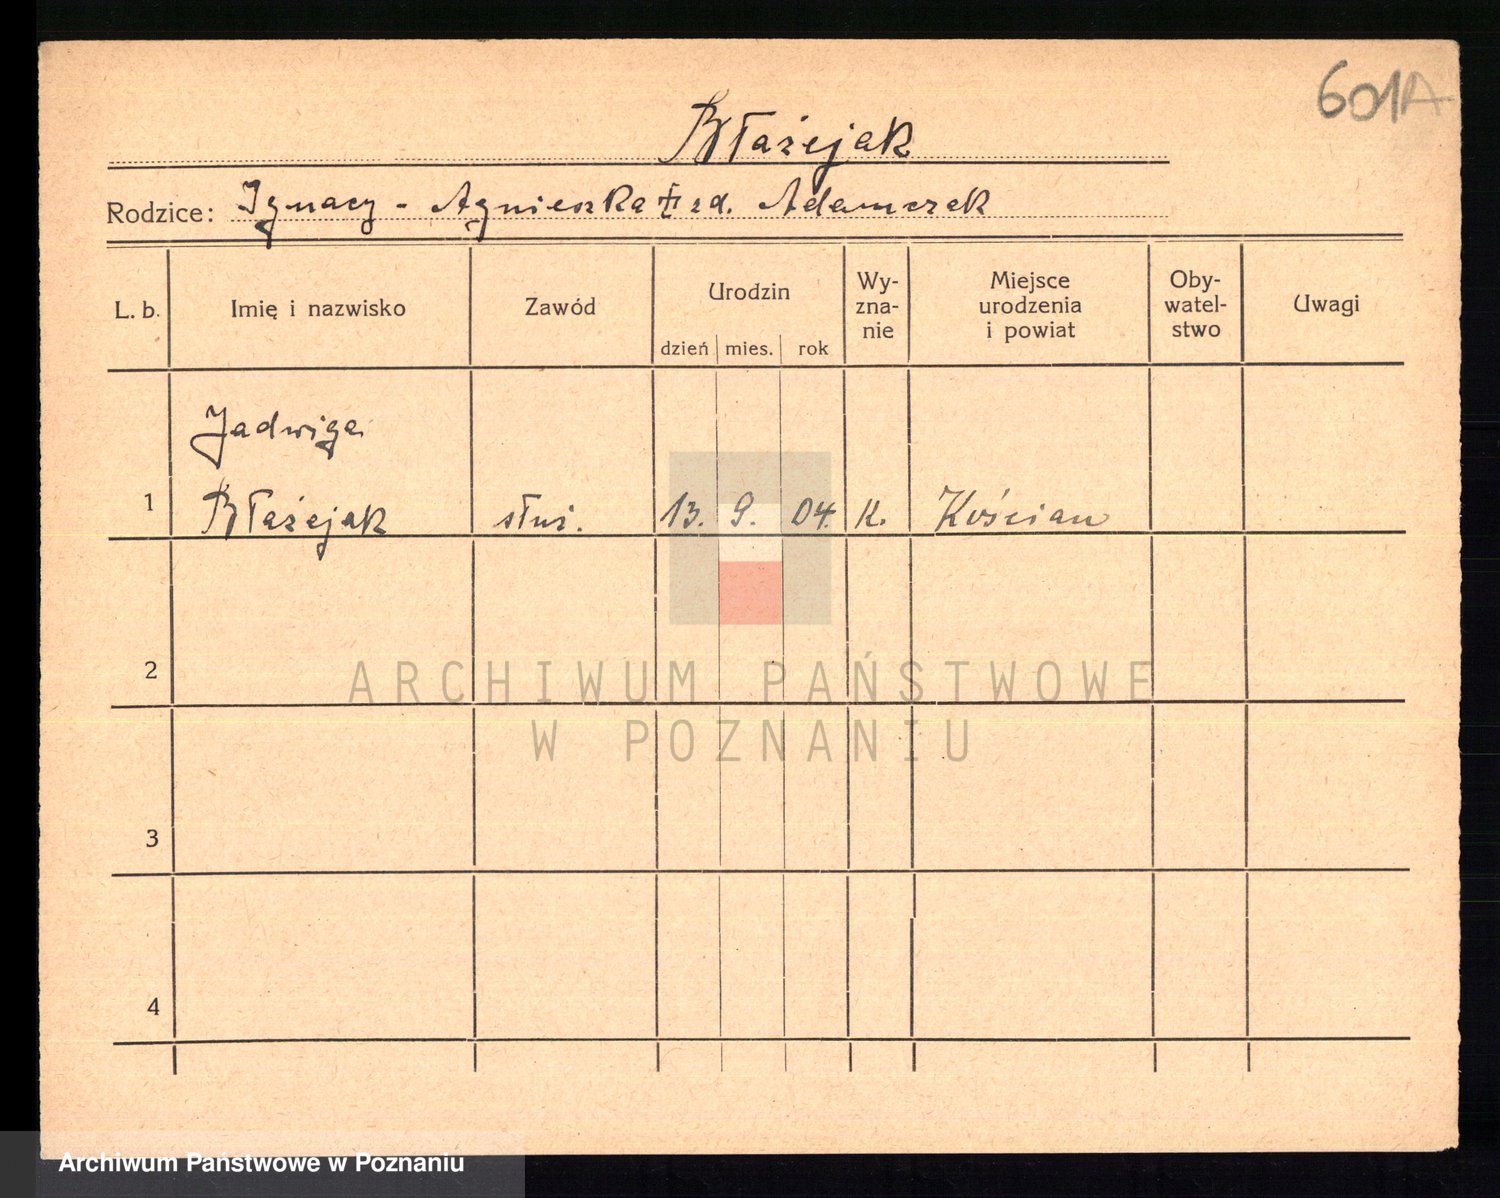 601A
Błażejak
Rodzice: Ignacy - Agnieszka zd. Adamczak
L. b. Imię i nazwisko Zawód Urodzin dzień mies. rok Wy-zna-nie Miejsce urodzenia i powiat Oby-watel-stwo Uwagi
Jadwiga
1 Błażejak służ. 13. 9. 04. K. Kościan
2
ARCHIWUM PAŃSTWOWE
W POZNANIU
3
4
Archiwum Państwowe w Poznaniu